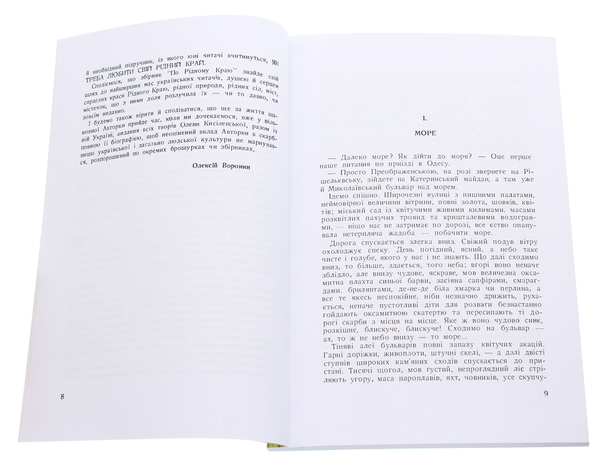 й необхідний підручник, із якого юні читачі вчитимуться, ЯК
ТРЕБА ЛЮБИТИ СВІЙ РІДНИЙ КРАЙ.
Сподіємося, що збірник "По Рідному Краю" знайде свій
шлях до найширших мас українських читачів, душею й серцем
спраглих краси Рідного Краю, рідної природи, рідних сіл, міст,
містечок, що з ними доля розлучила їх — чи то давно, чи
зовсім недавно.
І будемо також вірити й сподіватися, що ще за життя ша-
новної Авторки прийде час, коли ми дочекаємося, вже у віль-
ній Україні, видання всіх творів Олени Кисілевської, разом із
повною її біографією, щоб неоцінений вклад Авторки в скарб-
ницю української і загально людської культури не марнував-
ся, розпорошений по окремих брошурках чи збірниках.
Олексій Воропин
8
I.
МОРЕ
— Далеко море? Як дійти до моря? — Оце перше
наше питання по приїзді в Одесу.
— Просто Преображенською, на розі звернете на Рі-
шельєвську, зійдете на Катеринський майдан, а там уже
й Миколаївський бульвар над морем.
Ідемо спішно. Широчезні вулиці з пишними палатами,
неймовірної величини вітрини, повні золота, шовків, кві-
тів; міський сад із квітучими живими килимами, масами
розквітлих пахучих троянд та кришталевими водогра-
ями, — ніщо нас не затримає по дорозі, все єство опану-
вала нетерпляча жадоба — побачити море.
Дорога спускається злегка вниз. Свіжий подув вітру
охолоджує спеку. День погідний, ясний, а небо таке
чисте і голубе, якого у нас і не знають. Що далі сходимо
вниз, то більше, здається, того неба; вгорі воно неначе
зблідло, але внизу чудове, яскраве, мов величезна окса-
митна плахта синьої барви, засіяна сапфірами, смараг-
дами, брилянтами, де-не-де біла хмарка чи перлина, а
все те якесь неспокійне, ніби незначно дрижить, руха-
ється, неначе пустотливі діти для розваги безнастанно
гойдають оксамитною скатертю та пересипають ті до-
рогі скарби з місця на місце. Яке ж воно чудово синє,
розкішне, блискуче, блискуче! Сходимо на бульвар —
ах, то ж не небо внизу — то море...
Тіняві алеї бульварів повні запаху квітучих акацій.
Гарні доріжки, живоплоти, штучні скелі, — а далі двісті
ступнів широких кам'яних сходів спускається до при-
стані. Тисячі щогол, мов густий, непроглядний ліс стрі-
ляють угору, маса пароплавів, яхт, човників, усе скупчу-
9